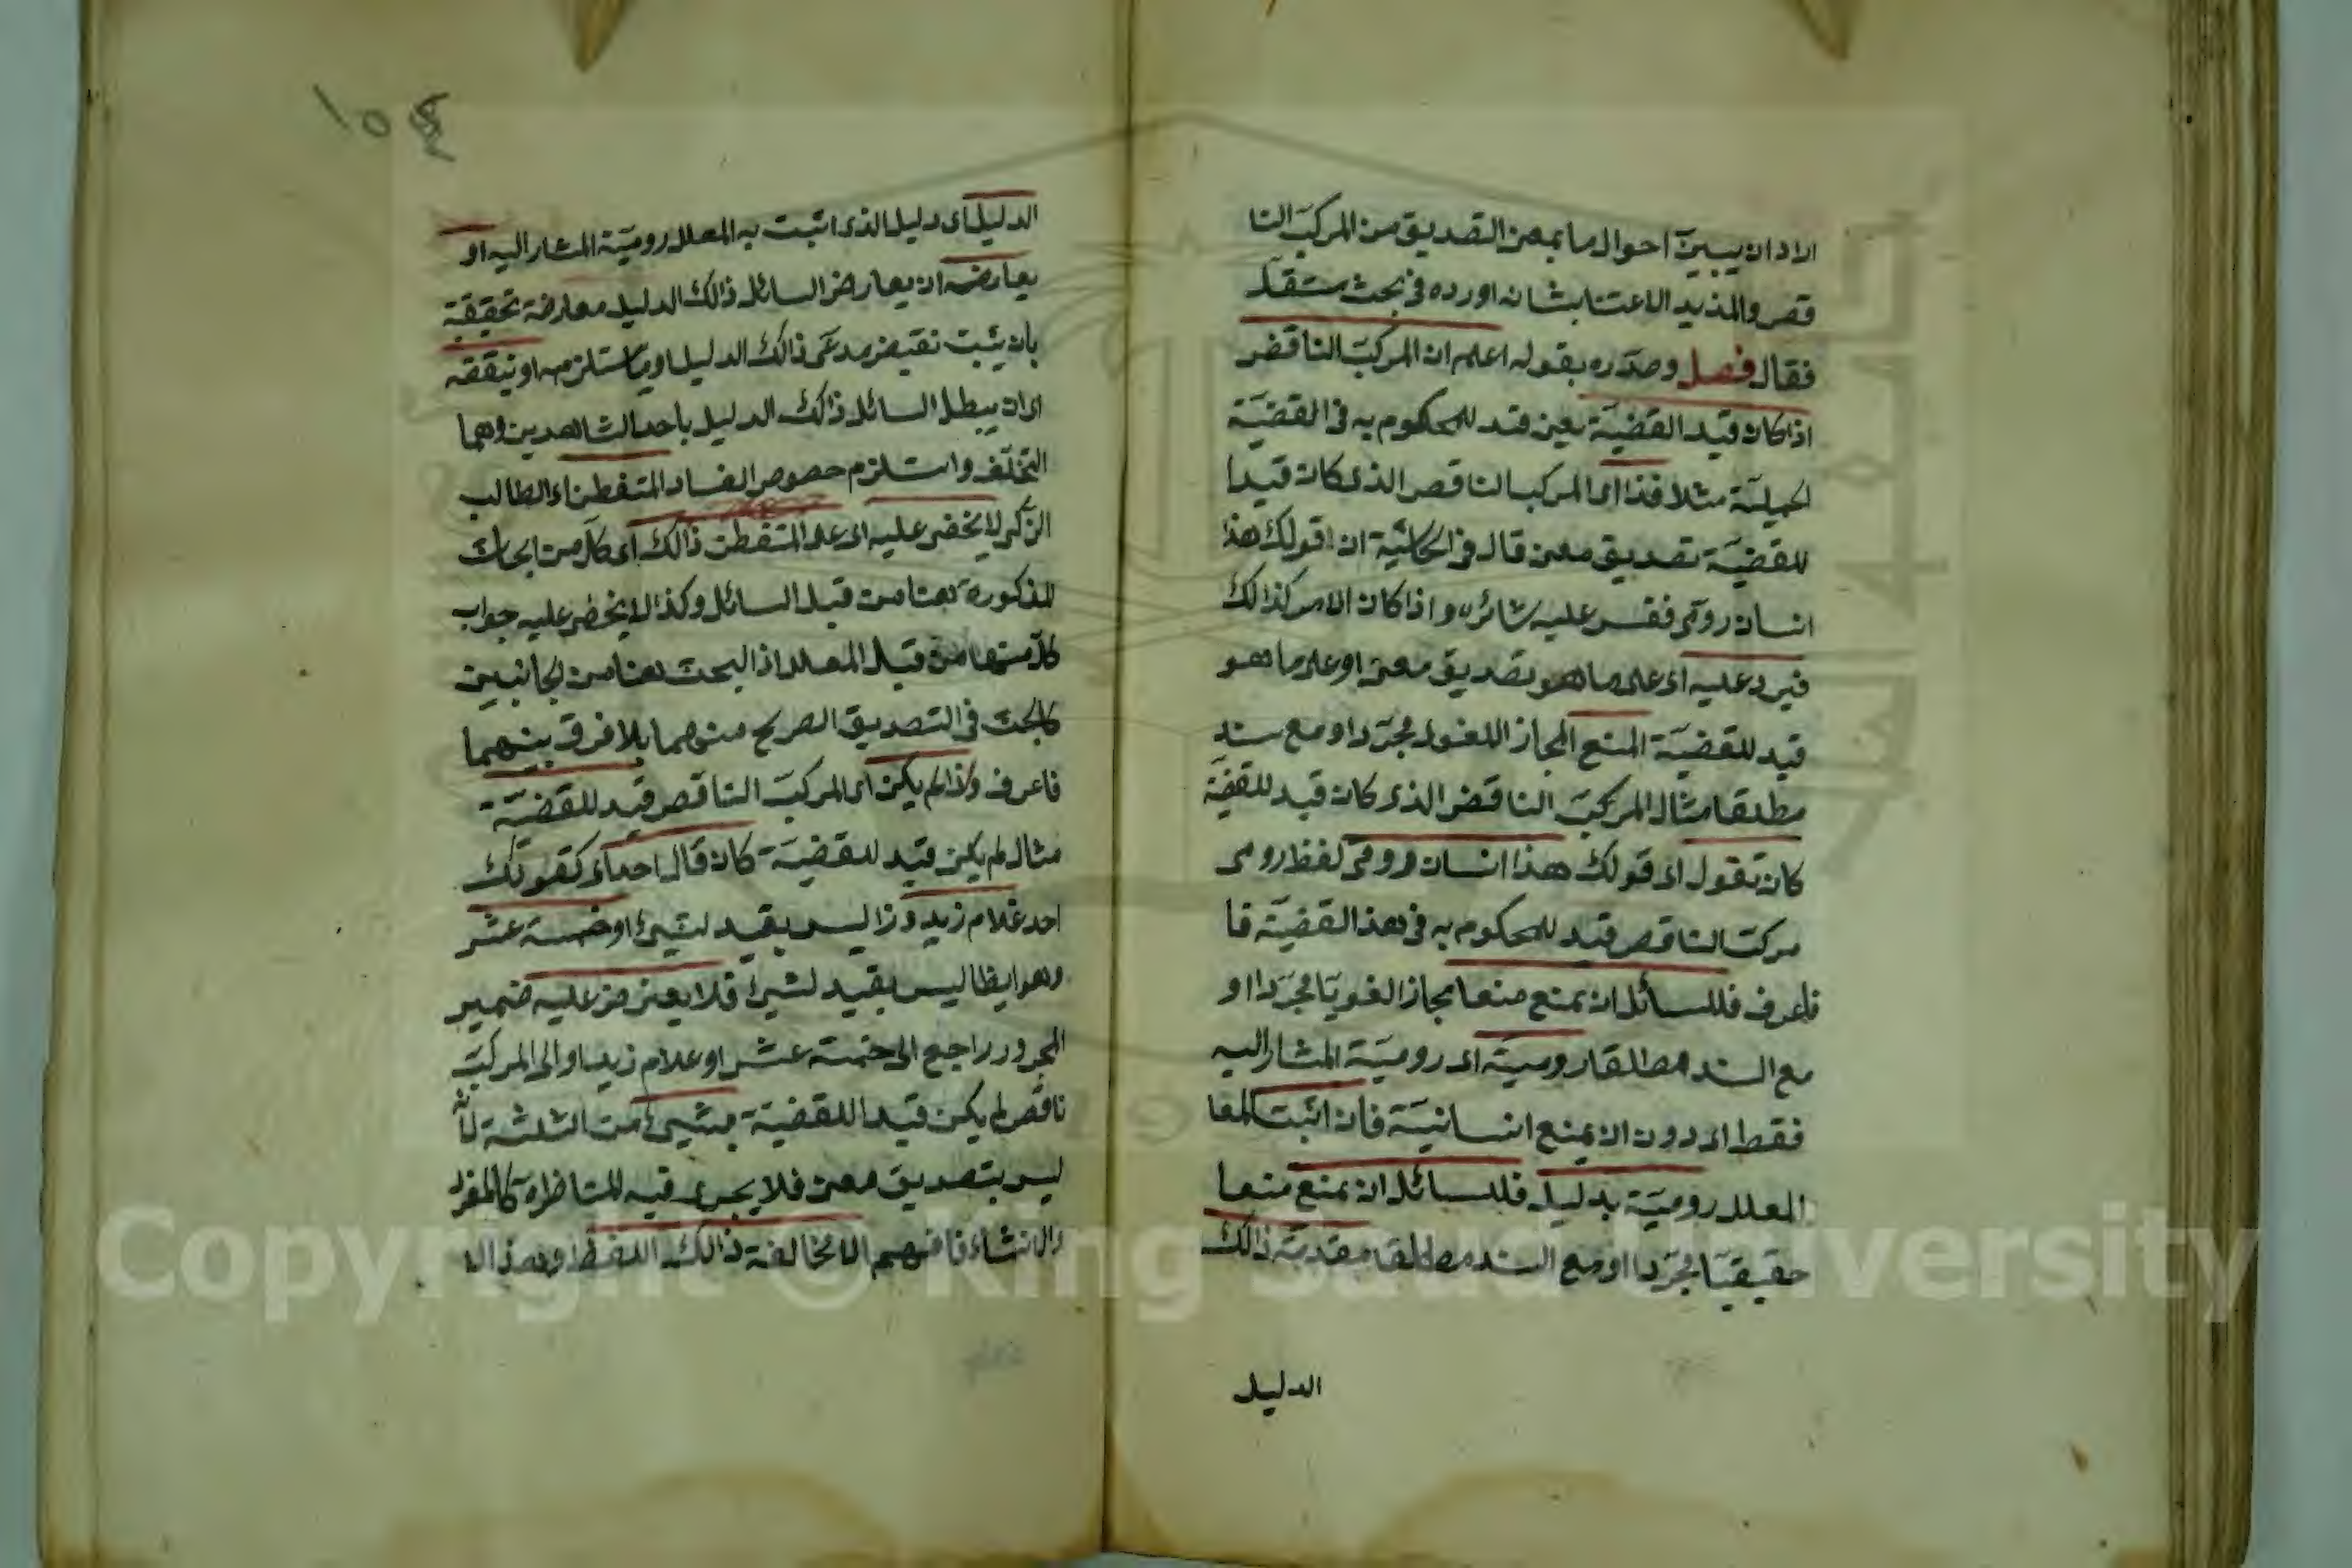 اراد ان يبيّن احوال ما بمعن التصديق من المركبَ النا
قص والمذيد الاعتنا بشانه اورده في بحث مستقلّ
فقال فصل وصدّره بقوله اعلم ان المركبَ الناقض
اذا كان قيد القضيّة يعين قيد للمحكوم به في القضيّة
الحميلتة مثلا فذا اى المركب الناقص الذى كان قيدا
للقضيّة تصديق معن قال في الحاشية ان قولك هذا
انسان رومّى فقس عليه سائره واذا كان الامر كذالك
فيرد عليه اى على ما هو تصديق معنى او على ما هو
قيد للقضيّة المنع المجاز اللغوى مجرّدا او مع سند
مطلقا مثال المركبَ الناقض الذى كان قيد للقضيّة
كان تقول اى قولك هذا انسان رومّى لفظ رومى
مركب الناقص قيد للمحكوم به في هذ القضيّة فا
فاعرف فللسائل ان يمنع منعا مجاز الغويّا مجرّدا او
مع السند مطلقا روميّة اى روميّة المشار اليه
فقط اى دون ان يمنع انسانيّة فان اثبت المعا
المعلل روميّة بدليل فللسائل ان يمنع منعا
حقيقيّا مجرّدا او مع السند مطلقا مقدمّة ذالك
الدليل
١٥٤
الدليل اى دليل الذى اثبت به المعلل روميّة المشار اليه او
يعارضه ان يعارض السائل ذالك الدليل معارضة تحقيقة
بان يثبت نقيض مدعّى ذالك الدليل او ما يستلزمه او ينقضه
اى ان يبطل السائل ذالك الدليل باحد الشاهدين وهما
التخلّف واستلزم حصوص الفساد المتفطن اى الطالب
الزكى لا يخفى عليه اى على المتفطن ذالك اى كلّ من ابحاث
المذكورة هنا من قبل السائل وكذا لا يخفى عليه جواب
كلّ منها من قبل المعلل اذ البحث هنا من الجانبين
كالبحث في التصديق الصريح منهما بلا فرق بينهما
فاعرف واذا لم يكن اى المركبَ الناقص قيد للقضيّة
مثال لم يكن قيد للقضيّة كان قال احد اى كقولك
احد غلام زيد وذا ليس بقيد لشئ او خمسة عشر
وهو ايظا ليس بقيد لشئ فلا يعترض عليه ضمير
المجرور راجع الى خمسة عشر او غلام زيد او الى المركبَ
ناقص لم يكن قيدا للقضيّة بشئ من الثلثة لانّه
ليس بتصديق معن فلا يجرى فيه المناظرة كالمفرد
والانشاء فافهم الا مخالفة ذالك اللفظ وهذا الا